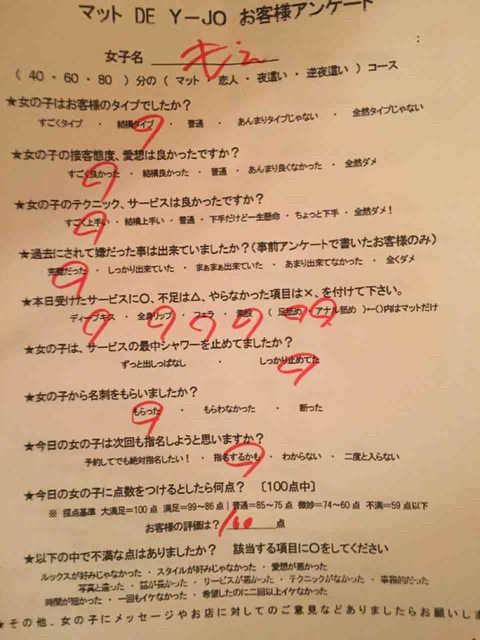 マット DE Y－JO お客様アンケート
女子名
( 40 ・ 60 ・ 80 ) 分の ( マット ・ 恋人 ・ 夜這い ・ 逆夜這い ) コース
★女の子はお客様のタイプでしたか？
すごくタイプ ・ 結構タイプ ・ 普通 ・ あんまりタイプじゃない ・ 全然タイプじゃない
★女の子の接客態度、愛想は良かったですか？
すごく良かった ・ 結構良かった ・ 普通 ・ あんまり良くなかった ・ 全然ダメ
★女の子のテクニック、サービスは良かったですか？
すごく上手い ・ 結構上手い ・ 普通 ・ 下手だけど一生懸命 ・ ちょっと下手 ・ 全然ダメ！
★過去にされて嫌だった事は出来ていましたか？(事前アンケートで書いたお客様のみ)
完璧だった ・ しっかり出来ていた ・ まぁまぁ出来ていた ・ あまり出来てなかった ・ 全くダメ
★本日受けたサービスに〇、不足は△、やらなかった項目は×、を付けて下さい。
ディープキス ・ 全身リップ ・ フェラ ・ 素股 ( 足舐め ・ アナル舐め )←()内はマットだけ
★女の子は、サービスの最中シャワーを止めてましたか？
ずっと出しっぱなし ・ しっかり止めてた
★女の子から名刺をもらいましたか？
もらった ・ もらわなかった ・ 断った
★今日の女の子は次回も指名しようと思いますか？
予約してでも絶対指名したい！ ・ 指名するかも ・ わからない ・ 二度と入らない
★今日の女の子に点数をつけるとしたら何点？ 〔100点中〕
※ 採点基準 大満足＝100点 満足＝99～86点 | 普通＝85～75点 微妙＝74～60点 不満＝59点以下
お客様の評価は？ 100 点
★以下の中で不満な点はありましたか？ 該当する項目に〇をしてください
ルックスが好みじゃなかった ・ スタイルが好みじゃなかった ・ 愛想が悪かった
写真と違った ・ 話が長かった ・ サービスが悪かった ・ テクニックがなかった ・ 事務的だった
時間が短かった ・ 一回もイケなかった ・ 希望したのに二回以上イケなかった
★その他、女の子にメッセージやお店に対してのご意見などありましたらお願いしま